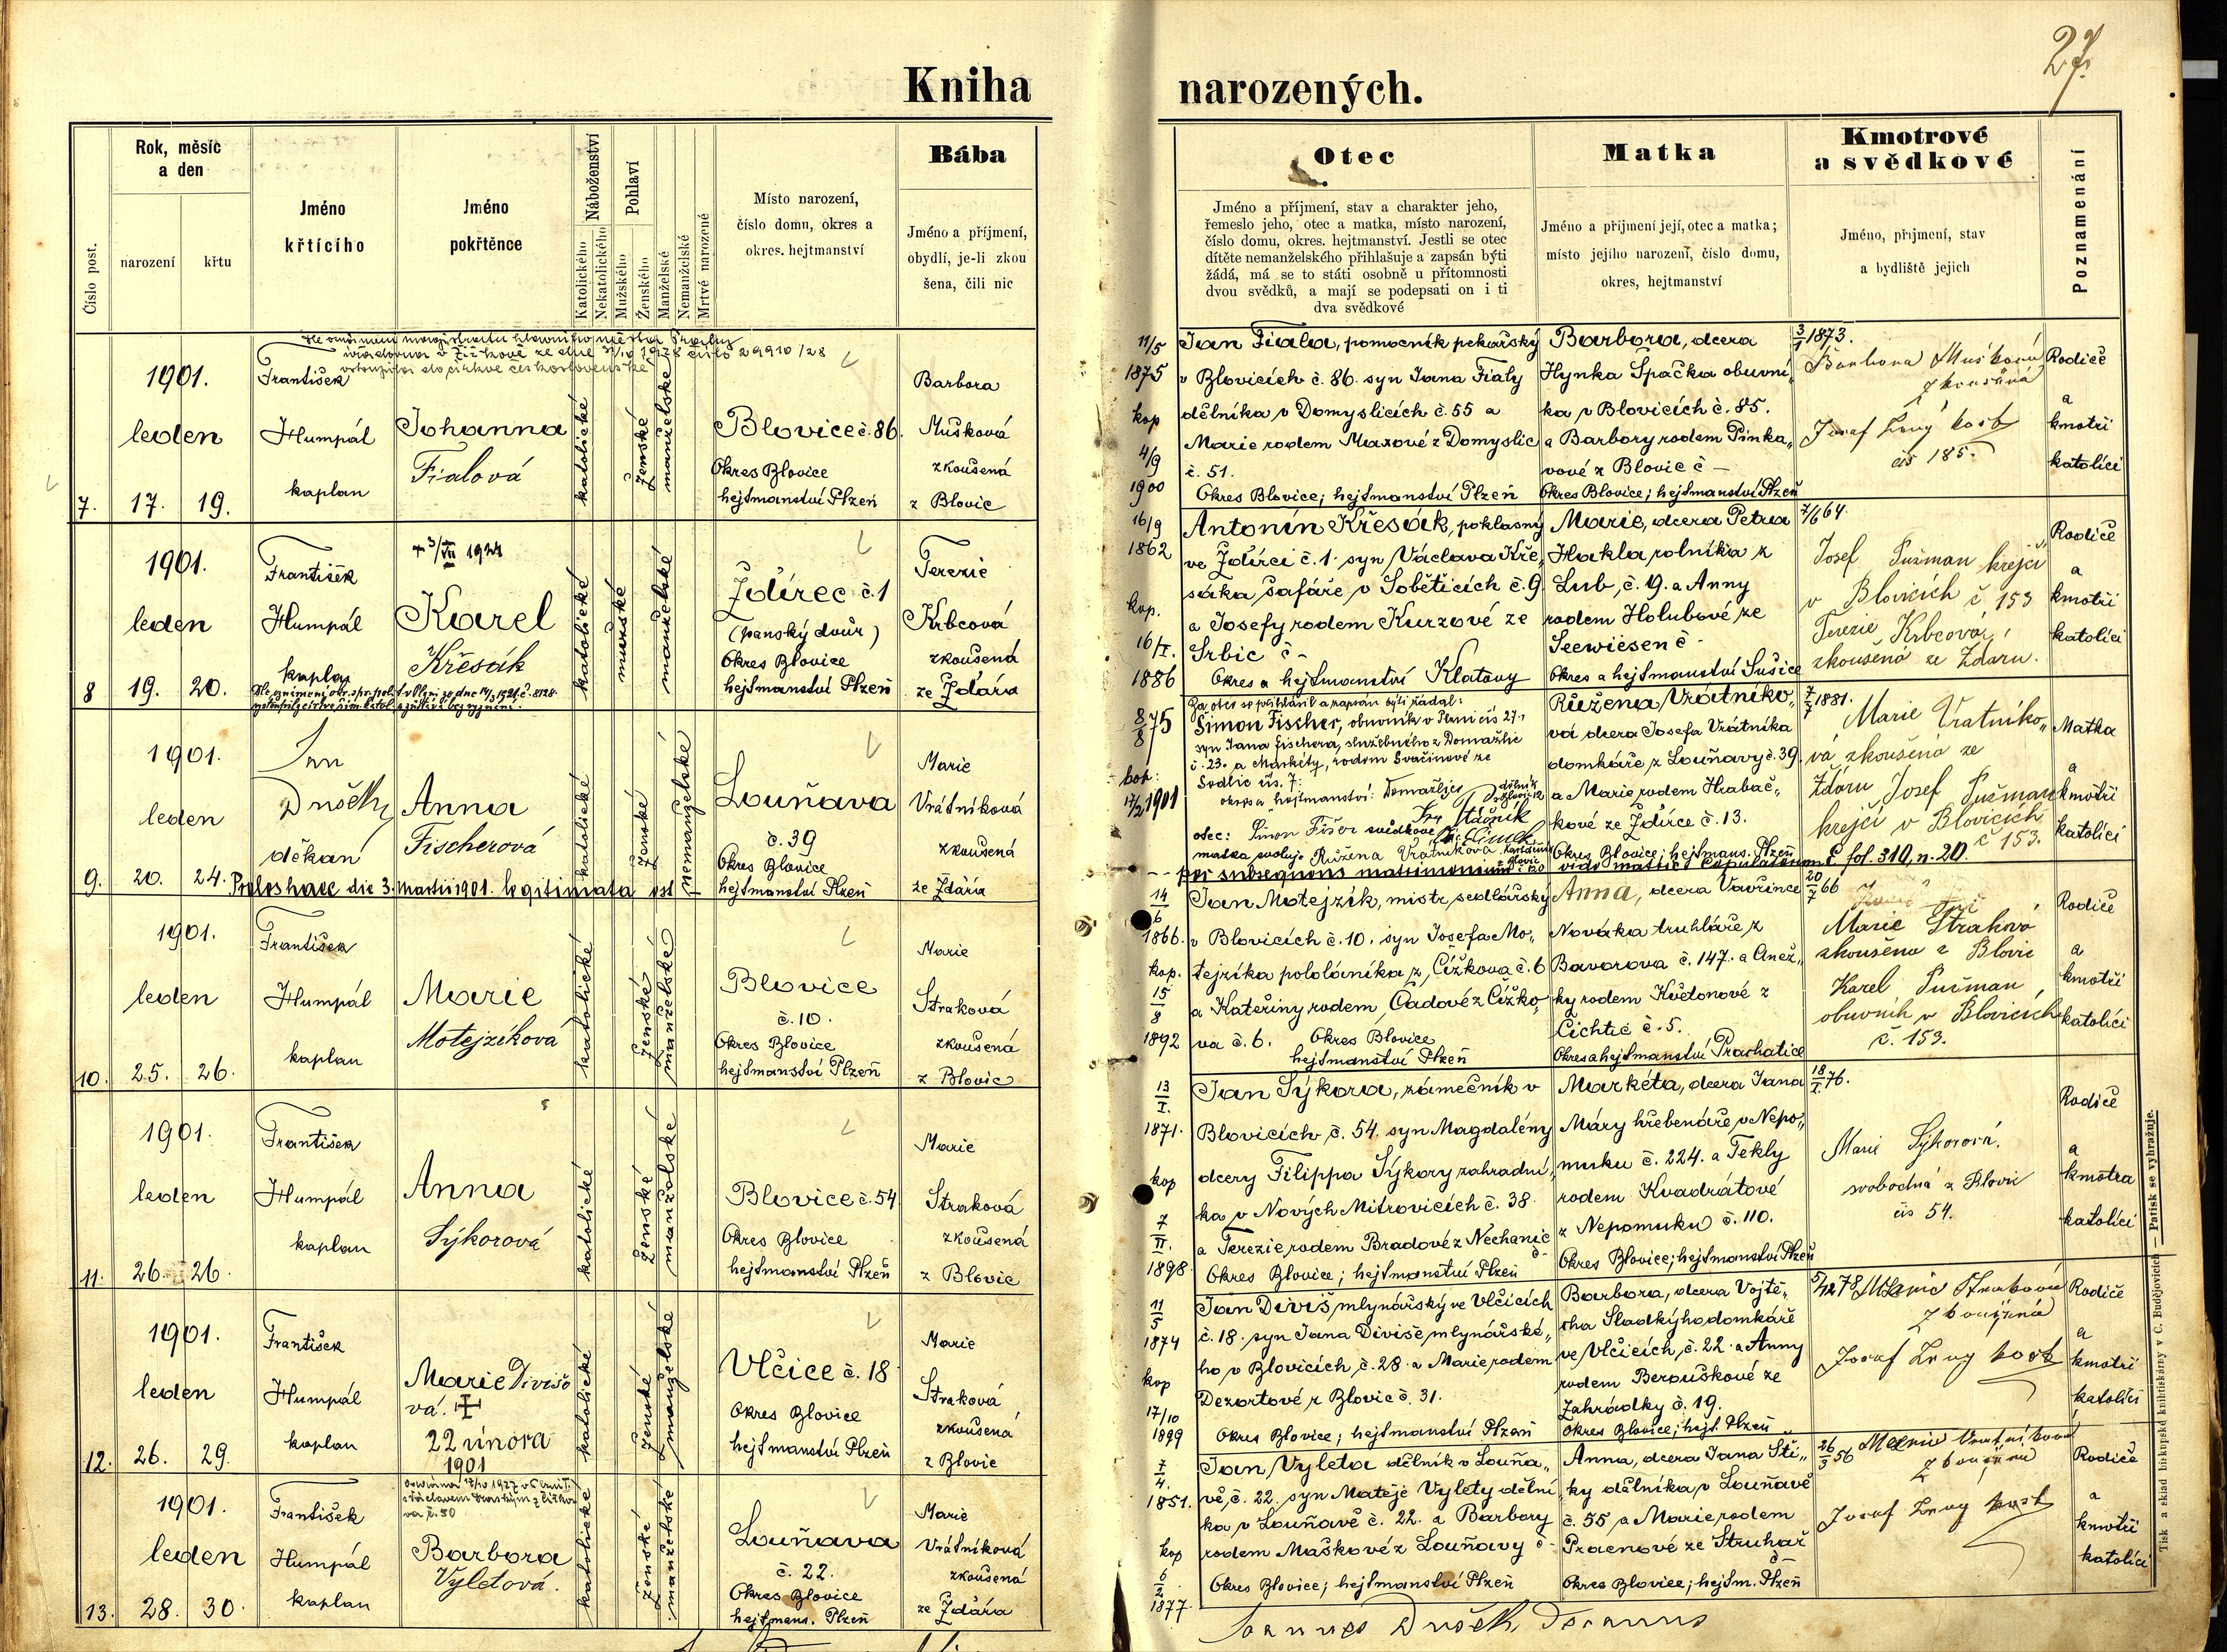 27.
Kniha narozených.
Číslo post.
Rok, měsíc
a den
narození
křtu
Jméno
křtícího
Jméno
pokřtěnce
Náboženství
Katolického
Nekatolického
Pohlaví
Mužského
Ženského
Manželské
Nemanželské
Mrtvé narozené
Místo narození,
číslo domu, okres a
okres. hejtmanství
Bába
Jméno a příjmení,
obydlí, je-li zkou
šena, čili nic
Otec
Jméno a příjmení, stav a charakter jeho,
řemeslo jeho, otec a matka, místo narození,
číslo domu, okres. hejtmanství. Jestli se otec
dítěte nemanželského přihlašuje a zapsán býti
žádá, má se to státi osobně u přítomnosti
dvou svědků, a mají se podepsati on i ti
dva svědkové
Matka
Jméno a příjmení její, otec a matka;
místo jejího narození, číslo domu,
okres, hejtmanství
Kmotrové
a svědkové
Jméno, příjmení, stav
a bydliště jejich
Poznamenání
7.
1901.
leden
17. 19.
František
Humpál
kaplan
Johanna
Fialová
katolické
ženské
manželské
Blovice č. 86.
Okres Blovice
hejtmanství Plzeň
Barbora
Mušková
zkoušená
z Blovic
11/5
1875
kop
4/9
1900
Jan Fiala, pomocník pekařský
v Blovicích č. 86. syn Jana Fialy
dělníka v Domyslicích č. 55 a
Marie rodem Maxové z Domyslic
č. 51.
Okres Blovice; hejtmanství Plzeň
Barbora, dcera
Hynka Špačka obuvní„
ka v Blovicích č. 85.
a Barbory rodem Pinka„
vové z Blovic č –
Okres Blovice; hejtmanství Plzeň
3/1 1873.
Barbora Mušková
zkoušená
čís 185.
Rodiče
a
kmotři
katolíci
8
1901.
leden
19. 20.
František
Humpál
kaplan
+ 3/VII 1924
Karel
Křesák
katolické
mužské
manželské
Ždírec č. 1
(panský dvůr)
Okres Blovice
hejtmanství Plzeň
Terezie
Krbcová
zkoušená
ze Ždára
16/9
1862
kop.
16/I.
1886
Antonín Křesák, poklasný
ve Ždírci č. 1. syn Václava Kře„
sáka šafáře v Soběticích č. 9
a Josefy rodem Kurzové ze
Srbic č –
Okres a hejtmanství Klatovy
Marie, dcera Petra
Hakla rolníka z
Lub, č. 9. a Anny
rodem Holubové ze
Seewiesen č –
Okres a hejtmanství Sušice
7/6 64.
Josef Pušman krejčí
v Blovicích č. 153
Terezie Krbcová,
zkoušená ze Ždáru.
Rodiče
a
kmotři
katolíci
9.
1901.
leden
20. 24.
Jan
Dušek
děkan
Anna
Fischerová
katolické
ženské
nemanželské
Louňava
č. 39
Okres Blovice
hejtmanství Plzeň
Marie
Vrátníková
zkoušená
ze Ždára
8/8 75
kop:
17/2 1901
Za otce se přihlásil a zapsán býti žádal:
Simon Fischer, obuvník v Plzni čís 27.
syn Jana Fischera, služebného z Domažlic
č. 23. a Markéty, rodem Svačinové ze
čís. 7.
okres a hejtmanství: Domažlice
otec: Simon Fišer svědkové
matka svoluje Růžena Vrátníková
Růžena Vrátníko„
vá dcera Josefa Vrátníka
domkáře z Louňavy č. 39.
a Marie rodem Hrabač„
kové ze Ždírce č. 13.
Okres Blovice; hejtmans. Plzeň
7/7 1881.
Marie Vratníko„
vá zkoušená ze
Ždáru Josef Pušman
krejčí v Blovicích
č 153.
Matka
a
kmotři
katolíci
Proles haec die 3. Martii 1901. legitimata est per subsequens matrimonium vide matric. copulatorum fol. 310, n. 20.
10.
1901.
leden
25. 26.
František
Humpál
kaplan
Marie
Motejzíková
katolické
ženské
manželské
Blovice
č. 10.
Okres Blovice
hejtmanství Plzeň
Marie
Straková
zkoušená
z Blovic
14/6
1866.
kop.
15/8
1892
Jan Motejzík, mistr sedlářský
v Blovicích č. 10. syn Josefa Mo„
tejzíka pololáníka z Čížkova č. 6
a Kateřiny rodem Čadové z Čížko„
va č. 6. Okres Blovice
hejtmanství Plzeň
Anna, dcera Vavřince
Nováka truhláře z
Bavorova č. 147. a Anež„
ky rodem Květonové z
Čichtic č. 5.
Okres a hejtmanství Prachatice
20/7 66
Marie Straková
zkoušena z Blovic
Karel Pušman,
obuvník v Blovicích
č. 153.
Rodiče
a
kmotři
katolíci
11.
1901.
leden
26. 26.
František
Humpál
kaplan
Anna
Sýkorová
katolické
ženské
manželské
Blovice č. 54
Okres Blovice
hejtmanství Plzeň
Marie
Straková
zkoušená
z Blovic
13/I.
1871.
kop
7/II.
1898.
Jan Sýkora, zámečník v
Blovicích č. 54. syn Magdalény
dcery Filippa Sýkory zahradní„
ka v Nových Mitrovicích č. 38.
a Terezie rodem Bradové z Nechanic
č –
Okres Blovice; hejtmanství Plzeň
Markéta, dcera Jana
Máry hřebenáře v Nepo„
muku č. 224. a Tekly
rodem Kvadrátové
z Nepomuku č. 110.
Okres Blovice; hejtmanství Plzeň
18/I. 76.
Marie Sýkorová.
svobodná z Blovic
čís 54.
Rodiče
a
kmotra
katolíci
12.
1901.
leden
26. 29.
František
Humpál
kaplan
Marie Divišo
vá. ✝
22 února
1901
katolické
ženské
manželské
Vlčice č. 18
Okres Blovice
hejtmanství Plzeň
Marie
Straková
zkoušená
z Blovic
11/5
1874
kop
17/10
1899
Jan Diviš, mlynářský ve Vlčicích
č. 18. syn Jana Diviše, mlynářské„
ho v Blovicích, č. 28. a Marie rodem
Dezortové z Blovic č. 31.
Okres Blovice; hejtmanství Plzeň
Barbora, dcera Vojtě„
cha Sladkýho domkáře
ve Vlčicích, č. 22. a Anny
rodem Berouškové ze
Zahrádky č. 19.
Okres Blovice; hejt. Plzeň
5/12 78 Marie Straková
zkoušená
Rodiče
a
kmotři
katolíci
13.
1901.
leden
28. 30.
František
Humpál
kaplan
Barbora
Vyletová.
katolické
ženské
manželské
Louňava
č. 22.
Okres Blovice
hejtmans. Plzeň
Marie
Vrátníková
zkoušená
ze Ždára
7/4.
1851.
kop
6/2.
1877.
Jan Vyleta dělník v Louňa„
vě, č. 22. syn Matěje Vylety dělní„
ka v Louňavě č. 22. a Barbory
rodem Maškové z Louňavy č –
Okres Blovice; hejtmanství Plzeň
Anna, dcera Jana Stí„
ky dělníka, v Louňavě
č. 55 a Marie rodem
Pracnové ze Struhař
č –
Okres Blovice; hejtm. Plzeň
26/5 56 Marie Vratníková
zkoušená
Rodiče
a
kmotři
katolíci
Joannes Dušek, Decanus
Tisk a sklad biskupské knihtiskárny v Č. Budějovicích — Patisk se vyhražuje.